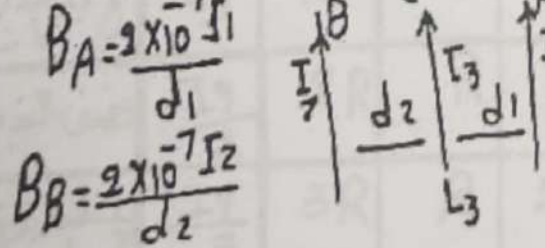 B_A = 2×10⁻⁷ I₁ / d₁
B_B = 2×10⁻⁷ I₂ / d₂
B
I
d₂
I₃
d₁
L₃